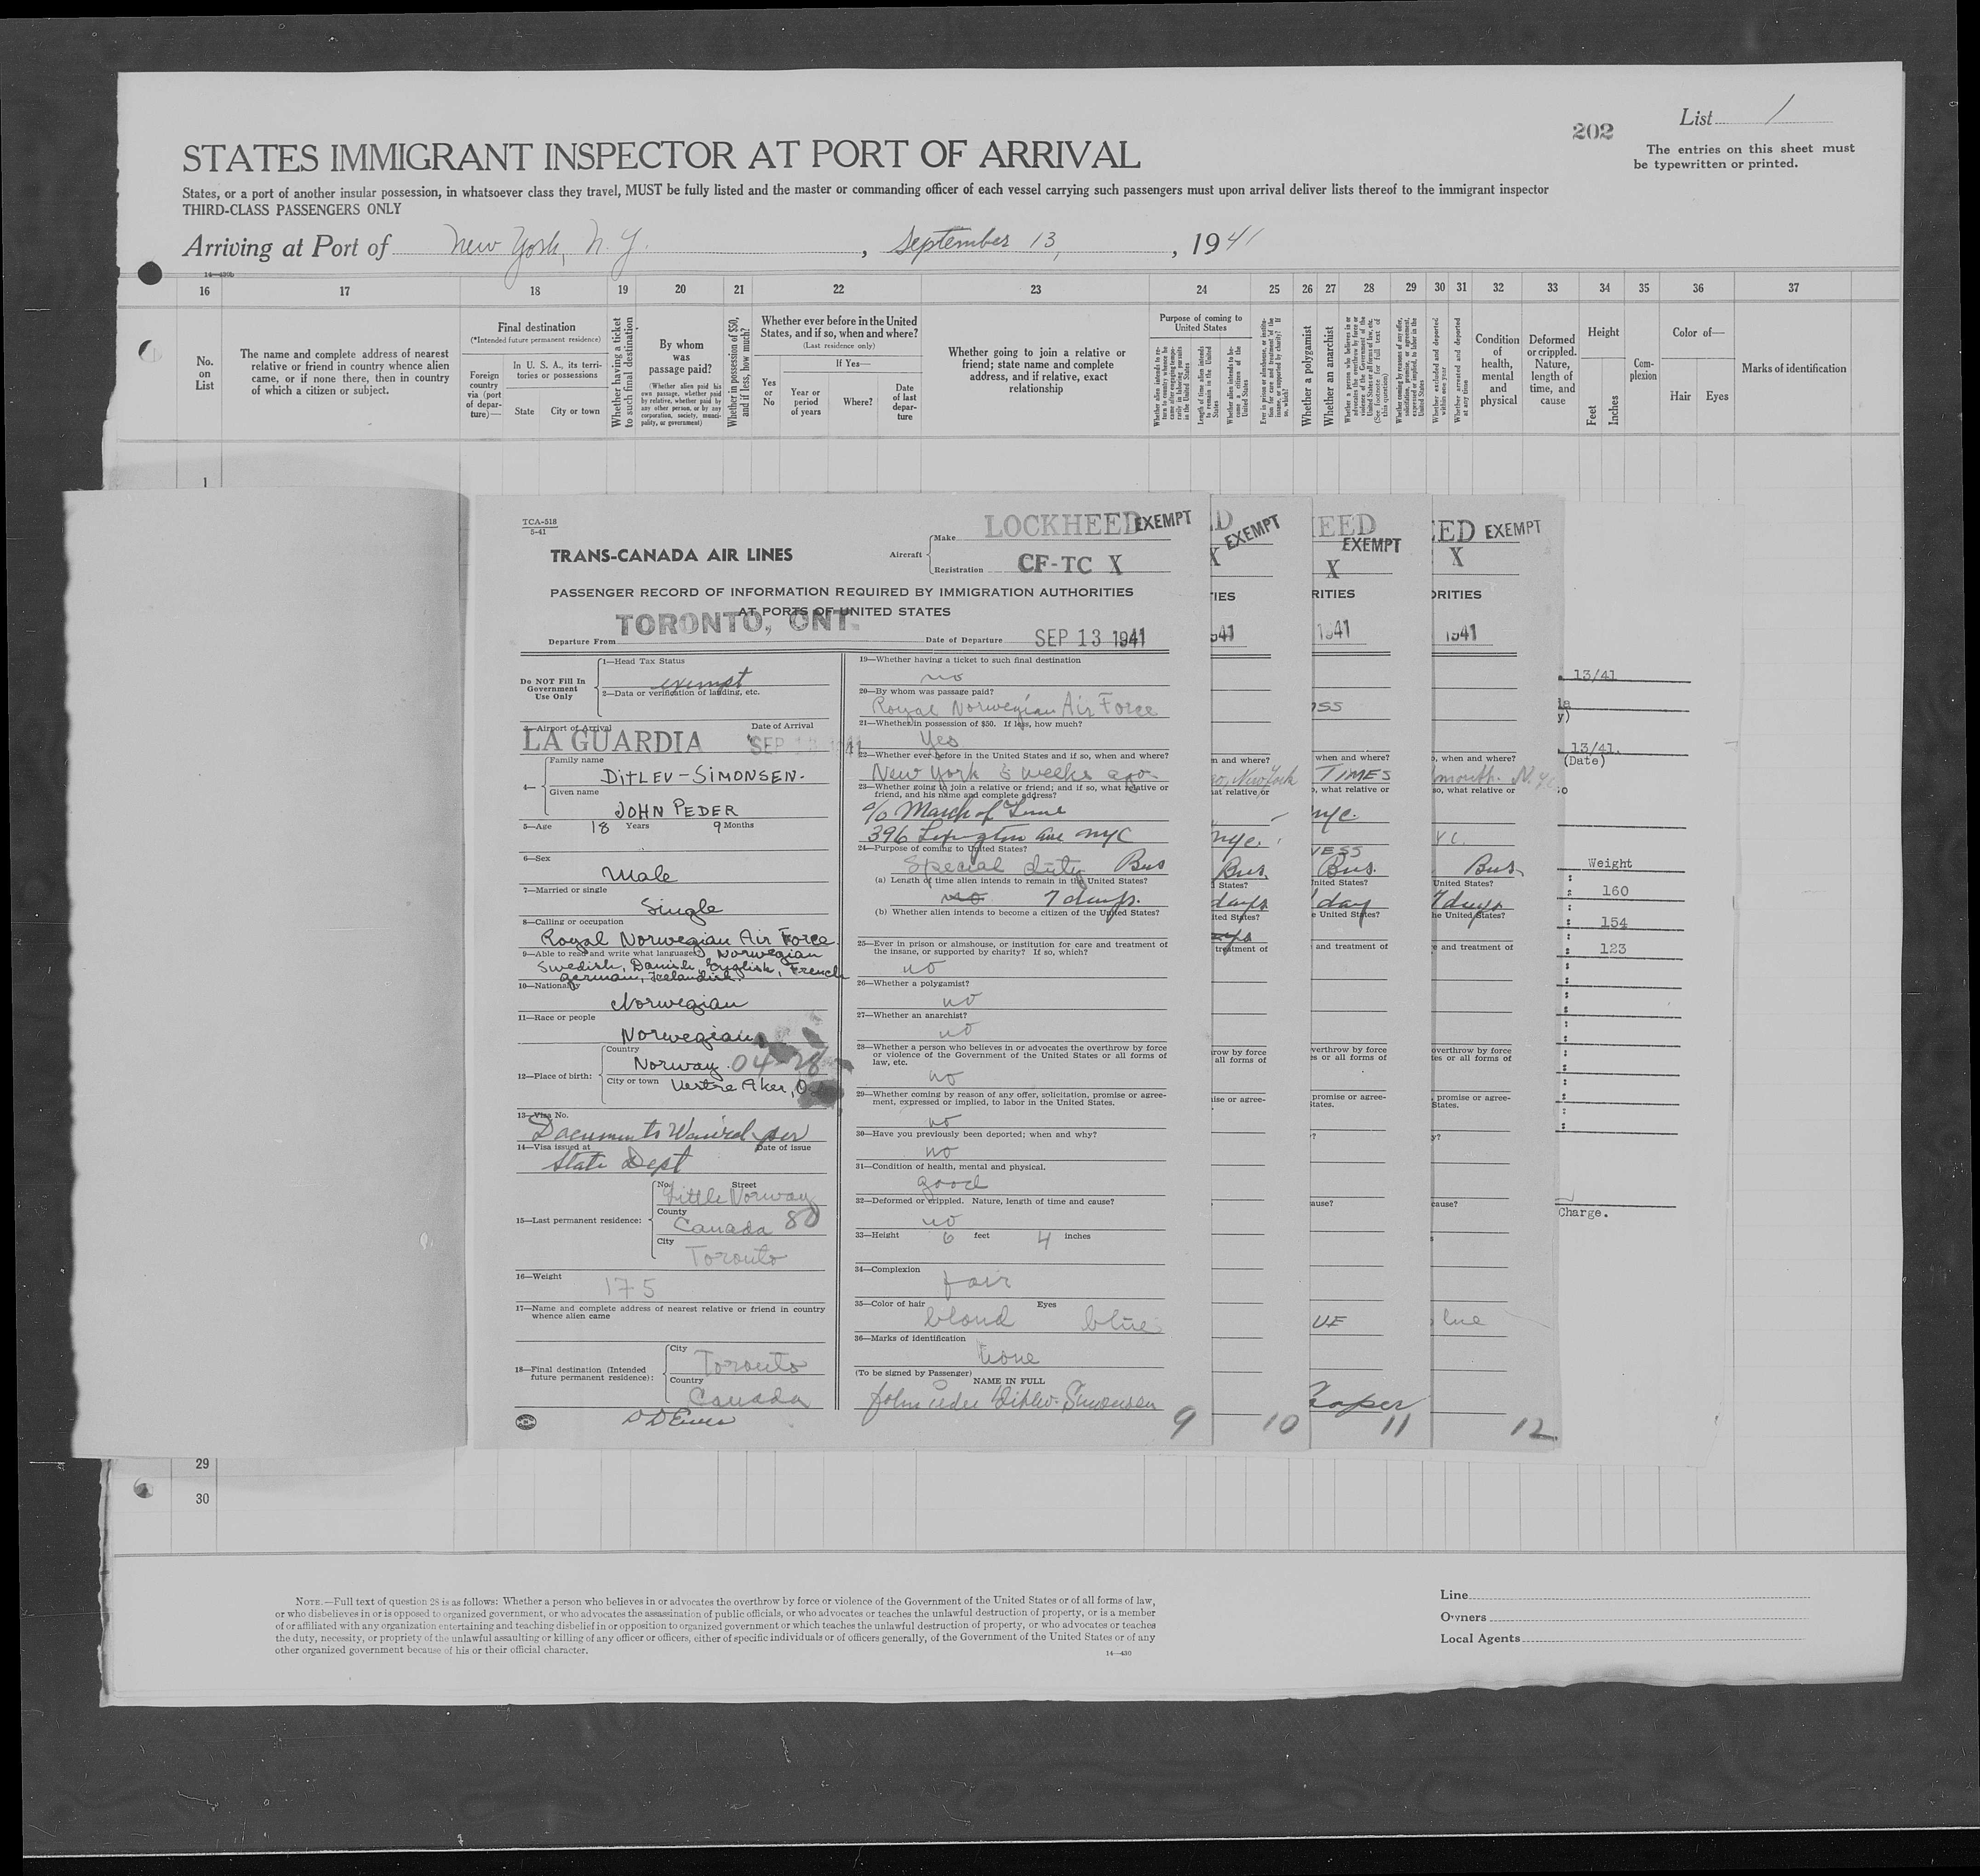 202
List 1
The entries on this sheet must
be typewritten or printed.
STATES IMMIGRANT INSPECTOR AT PORT OF ARRIVAL
States, or a port of another insular possession, in whatsoever class they travel, MUST be fully listed and the master or commanding officer of each vessel carrying such passengers must upon arrival deliver lists thereof to the immigrant inspector
THIRD-CLASS PASSENGERS ONLY
Arriving at Port of New York, N. Y. , September 13, , 1941
14—430b
16 17 18 19 20 21 22 23 24 25 26 27 28 29 30 31 32 33 34 35 36 37
No.
on
List
The name and complete address of nearest
relative or friend in country whence alien
came, or if none there, then in country
of which a citizen or subject.
Final destination
(*Intended future permanent residence)
Foreign
country
via (port
of depar-
ture)—
In U. S. A., its terri-
tories or possessions
State City or town
Whether having a ticket
to such final destination
By whom
was
passage paid?
(Whether alien paid his
own passage, whether paid
by relative, whether paid by
any other person, or by any
corporation, society, munici-
pality, or government)
Whether in possession of $50,
and if less, how much?
Whether ever before in the United
States, and if so, when and where?
(Last residence only)
If Yes—
Yes
or
No
Year or
period
of years
Where?
Date
of last
depar-
ture
Whether going to join a relative or
friend; state name and complete
address, and if relative, exact
relationship
Purpose of coming to
United States
Whether a polygamist
Whether an anarchist
Condition
of
health,
mental
and
physical
Deformed
or crippled.
Nature,
length of
time, and
cause
Height
Feet
Inches
Com-
plexion
Color of—
Hair Eyes
Marks of identification
1
TCA-518
5-41
TRANS-CANADA AIR LINES
Aircraft
Make LOCKHEED EXEMPT
Registration CF-TC X
PASSENGER RECORD OF INFORMATION REQUIRED BY IMMIGRATION AUTHORITIES
AT PORTS OF UNITED STATES
Departure From TORONTO, ONT. Date of Departure SEP 13 1941
Do NOT Fill In
Government
Use Only
1—Head Tax Status
exempt
2—Data or verification of landing, etc.
3—Airport of Arrival Date of Arrival
LA GUARDIA SEP 13 1941
4—
Family name
DITLEV-SIMONSEN.
Given name
JOHN PEDER
5—Age 18 Years 9 Months
6—Sex
Male
7—Married or single
Single
8—Calling or occupation
Royal Norwegian Air Force
9—Able to read and write what languages Norwegian
Swedish, Danish, English, French
german, Icelandish.
10—Nationality
Norwegian
11—Race or people
Norwegian
12—Place of birth:
Country
Norway.
City or town Vestre Aker,
13—Visa No.
Documents Waived per
14—Visa issued at Date of issue
State Dept
15—Last permanent residence:
No. Street
Little Norway
County
Canada 80
City
Toronto
16—Weight
175
17—Name and complete address of nearest relative or friend in country
whence alien came
18—Final destination (Intended
future permanent residence):
City
Toronto
Country
Canada
19—Whether having a ticket to such final destination
no
20—By whom was passage paid?
Royal Norwegian Air Force
21—Whether in possession of $50. If less, how much?
Yes
22—Whether ever before in the United States and if so, when and where?
New York weeks ago.
23—Whether going to join a relative or friend; and if so, what relative or
friend, and his name and complete address?
c/o March of Time
396 Lexington Ave NYC
24—Purpose of coming to United States?
Special duty Bus
(a) Length of time alien intends to remain in the United States?
no 7 days.
(b) Whether alien intends to become a citizen of the United States?
25—Ever in prison or almshouse, or institution for care and treatment of
the insane, or supported by charity? If so, which?
no
26—Whether a polygamist?
no
27—Whether an anarchist?
no
28—Whether a person who believes in or advocates the overthrow by force
or violence of the Government of the United States or all forms of
law, etc.
no
29—Whether coming by reason of any offer, solicitation, promise or agree-
ment, expressed or implied, to labor in the United States.
no
30—Have you previously been deported; when and why?
no
31—Condition of health, mental and physical.
good
32—Deformed or crippled. Nature, length of time and cause?
no
33—Height 6 feet 4 inches
34—Complexion
fair
35—Color of hair Eyes
blond blue
36—Marks of identification
none
(To be signed by Passenger)
NAME IN FULL
John Peder Ditlev-Simonsen
9
10
11
12
EXEMPT
EXEMPT
EXEMPT
X
X
TIMES
nyc.
Bus.
Bus.
Bus.
days
day
7 days
13/41
13/41.
(Date)
Weight
160
154
123
Charge.
29
30
NOTE.—Full text of question 28 is as follows: Whether a person who believes in or advocates the overthrow by force or violence of the Government of the United States or of all forms of law,
or who disbelieves in or is opposed to organized government, or who advocates the assassination of public officials, or who advocates or teaches the unlawful destruction of property, or is a member
of or affiliated with any organization entertaining and teaching disbelief in or opposition to organized government or which teaches the unlawful destruction of property, or who advocates or teaches
the duty, necessity, or propriety of the unlawful assaulting or killing of any officer or officers, either of specific individuals or of officers generally, of the Government of the United States or of any
other organized government because of his or their official character.
14—430
Line
Owners
Local Agents